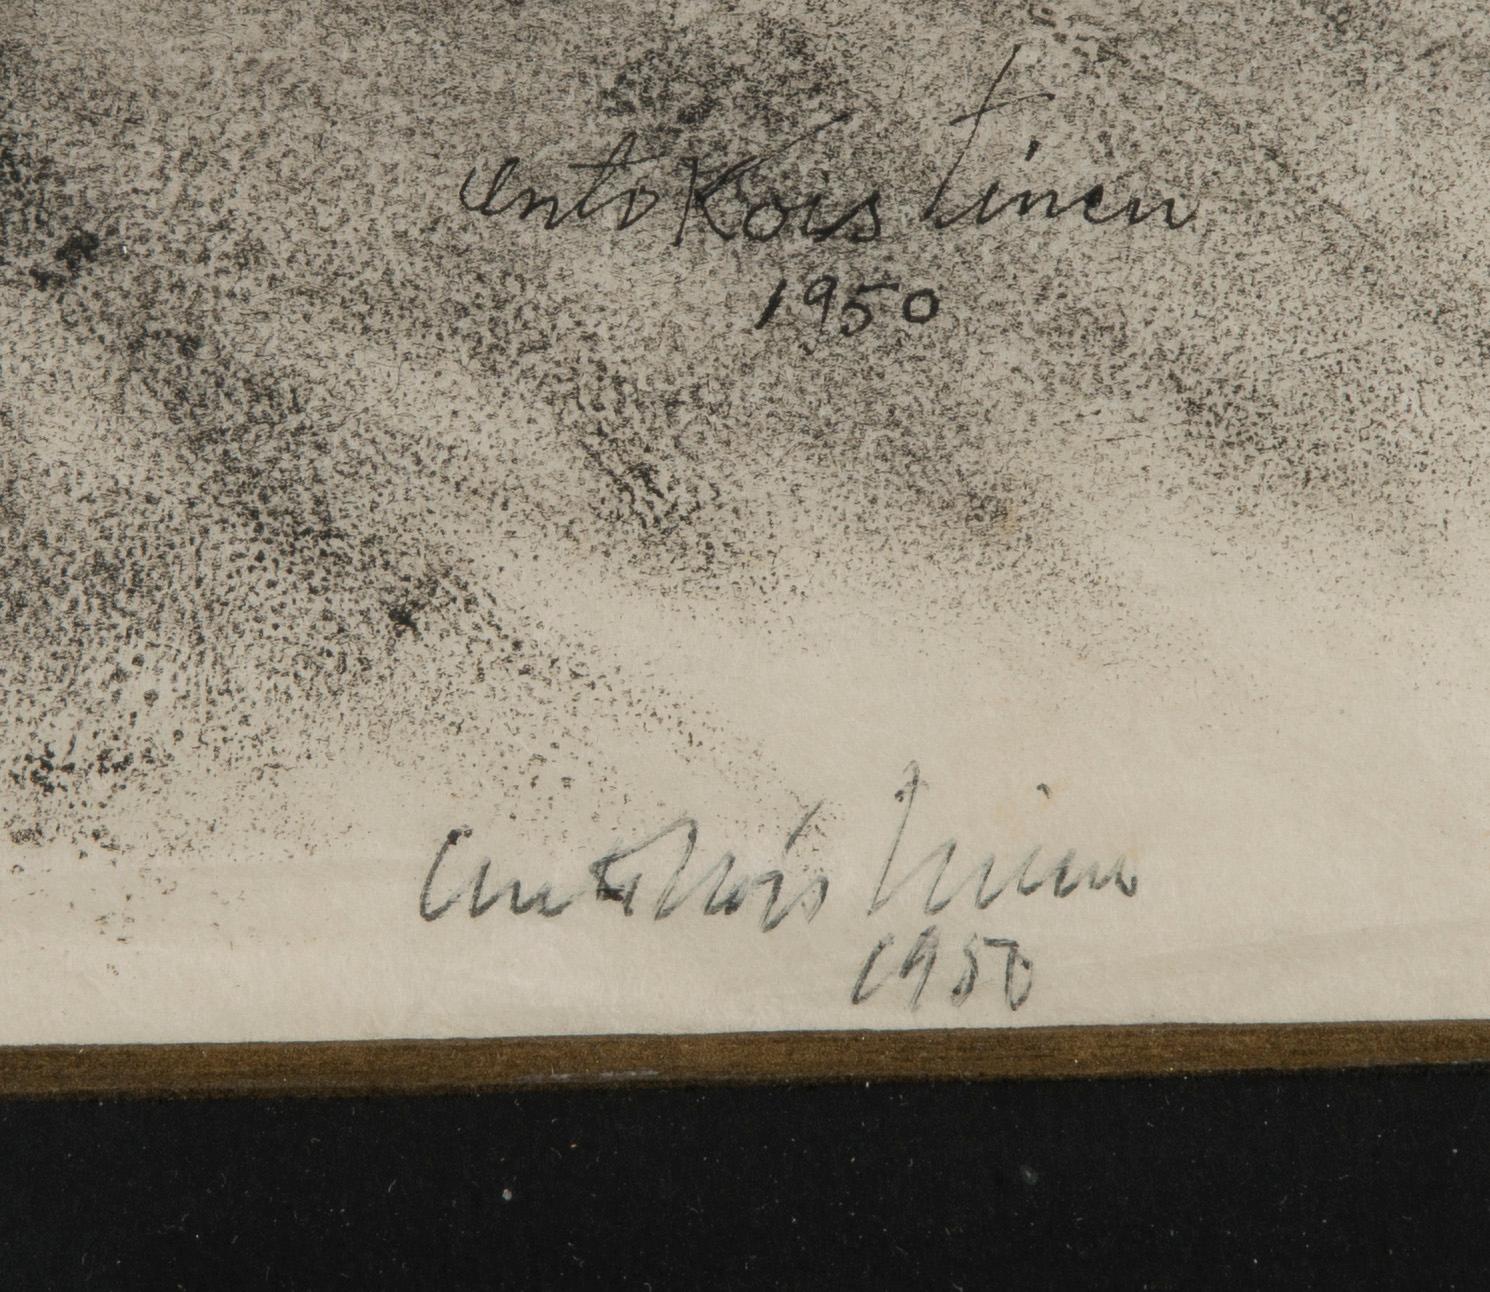 Unto Koistinen
1950
Unto Koistinen
1950